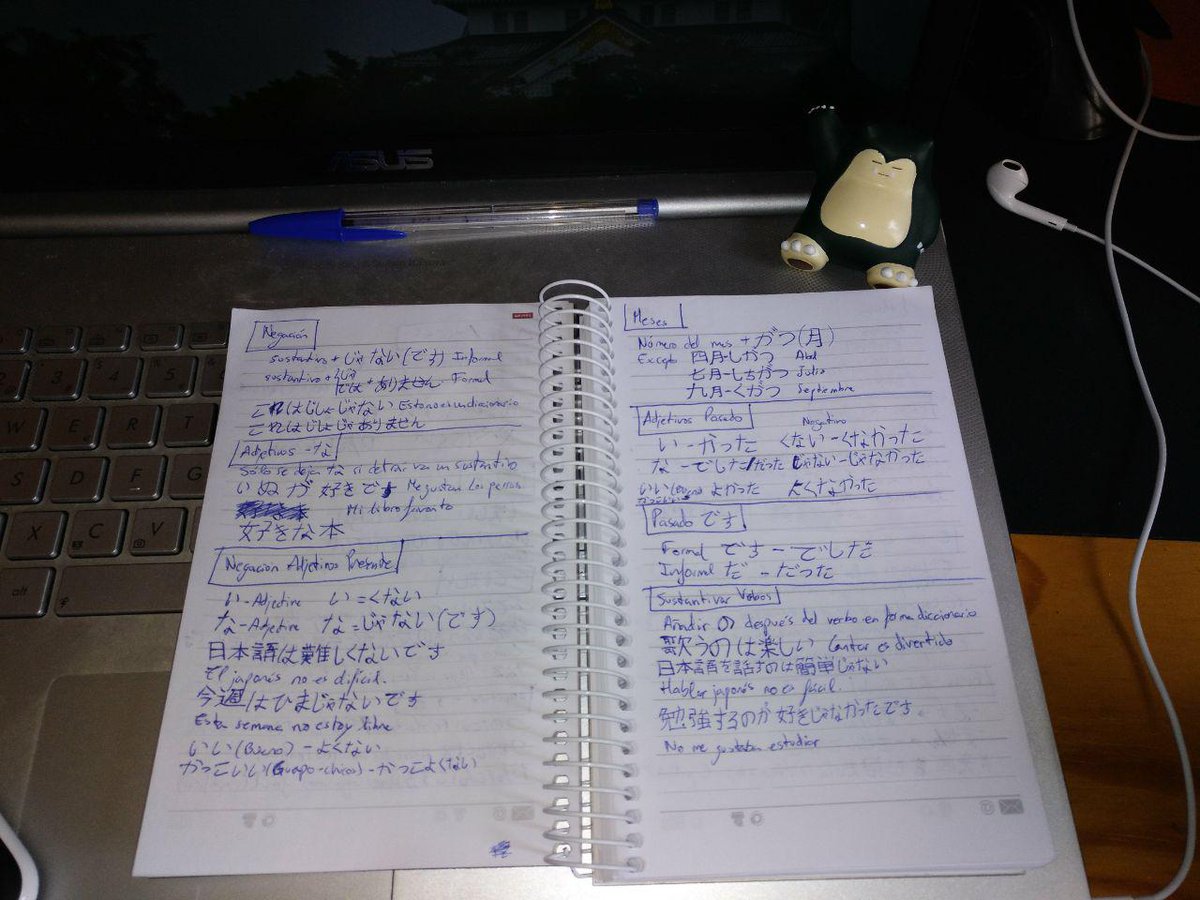 ASUS
Negación
sustantivo + じゃない(です) Informal
sustantivo + じゃ
では + ありません Formal
これはじしょじゃない Esto no es un diccionario
これはじしょじゃありません
Adjetivos -な
Sólo se deja な si detrás va un sustantivo
いぬが好きです Me gustan los perros
Mi libro favorito
好きな本
Negación Adjetivos Presente
い-Adjetivo い=くない
な-Adjetivo な=じゃない(です)
日本語は難しくないです
El japonés no es difícil.
今週はひまじゃないです
Esta semana no estoy libre
いい(Bueno) - よくない
かっこいい(Guapo-chico) - かっこよくない
Meses
Número del mes + がつ(月)
Excepto 四月-しがつ Abril
七月-しちがつ Julio
九月-くがつ Septiembre
Adjetivos Pasado Negativo
い-かった くない-くなかった
な-でした/だった じゃない-じゃなかった
いい(Bueno) よかった よくなかった
Pasado です
Formal です-でした
Informal だ-だった
Sustantivar Verbos
Añadir の después del verbo en forma diccionario
歌うのは楽しい Cantar es divertido
日本語を話すのは簡単じゃない
Hablar japonés no es fácil.
勉強するのが好きじゃなかったです
No me gustaba estudiar
W E R T
S D F G
X C V
alt